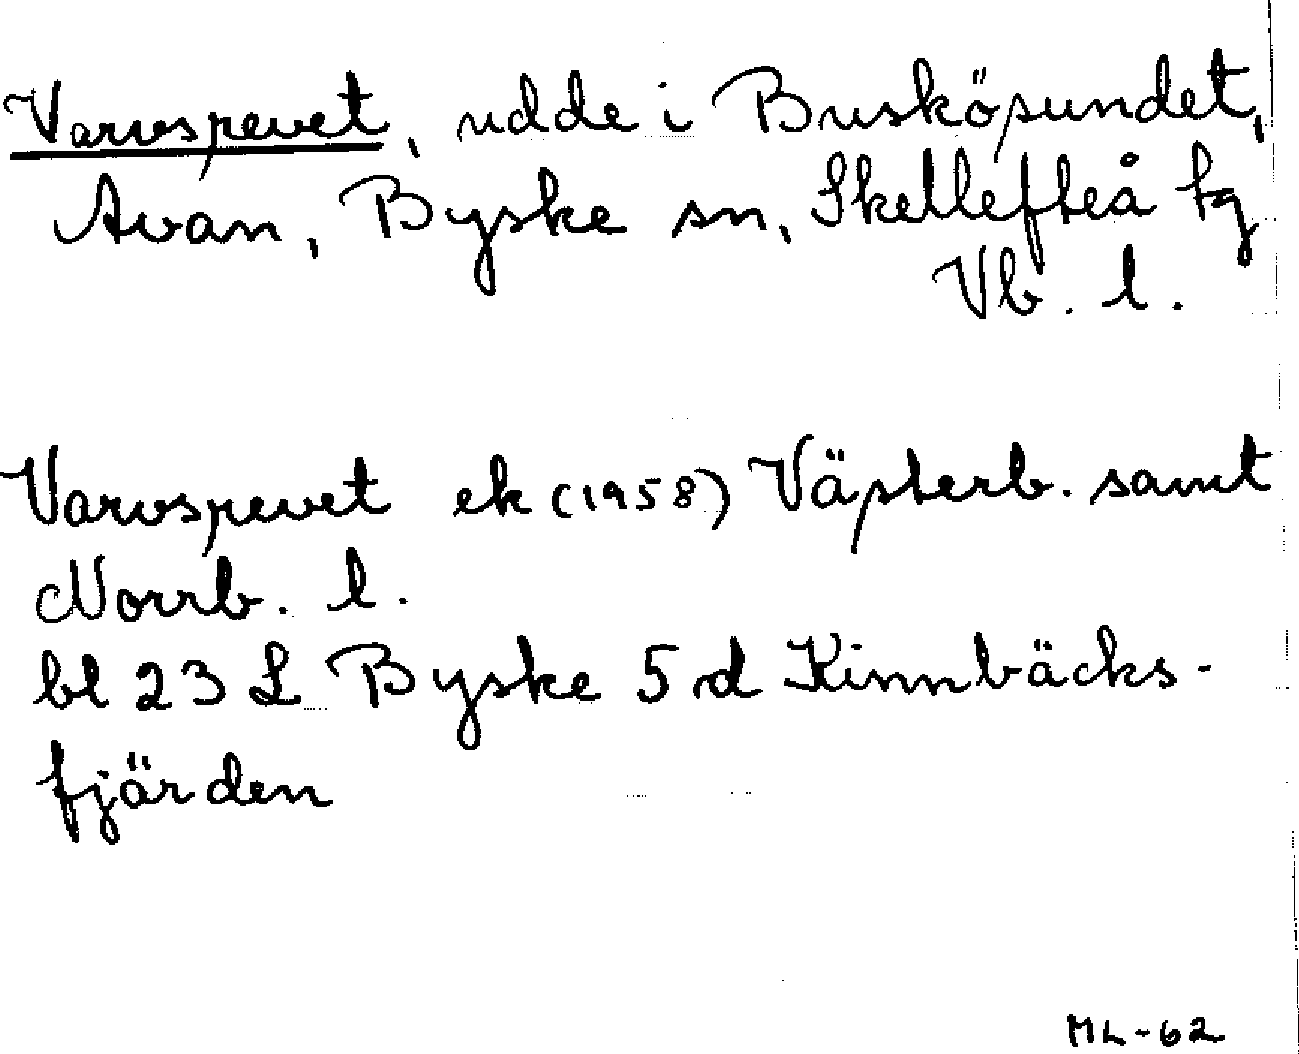 Varvsrevet, udde i Busköşundet,
Avan, Byske sn, Skellefteå tg
Vb. l.
Varvsrevet ek (1958) Västerb. samt
Norrb. l.
bl 23 L Byske 5 d Kinnbäcks-
fjärden
ML-62